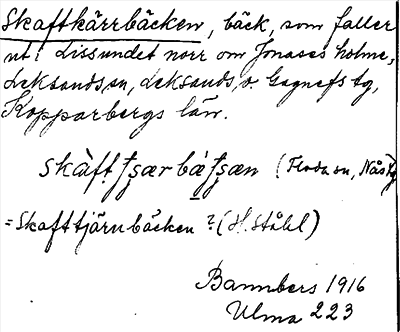 Skaftkärrbäcken, bäck, som faller
ut i Lissundet norr om Jonases holme,
Leksands sn, Leksands o. Gagnefs tg,
Kopparbergs län.
(Floda sn, Nås tg
= Skafttjärnbäcken? (H. Ståhl)
Bannbers 1916
Ulma 223